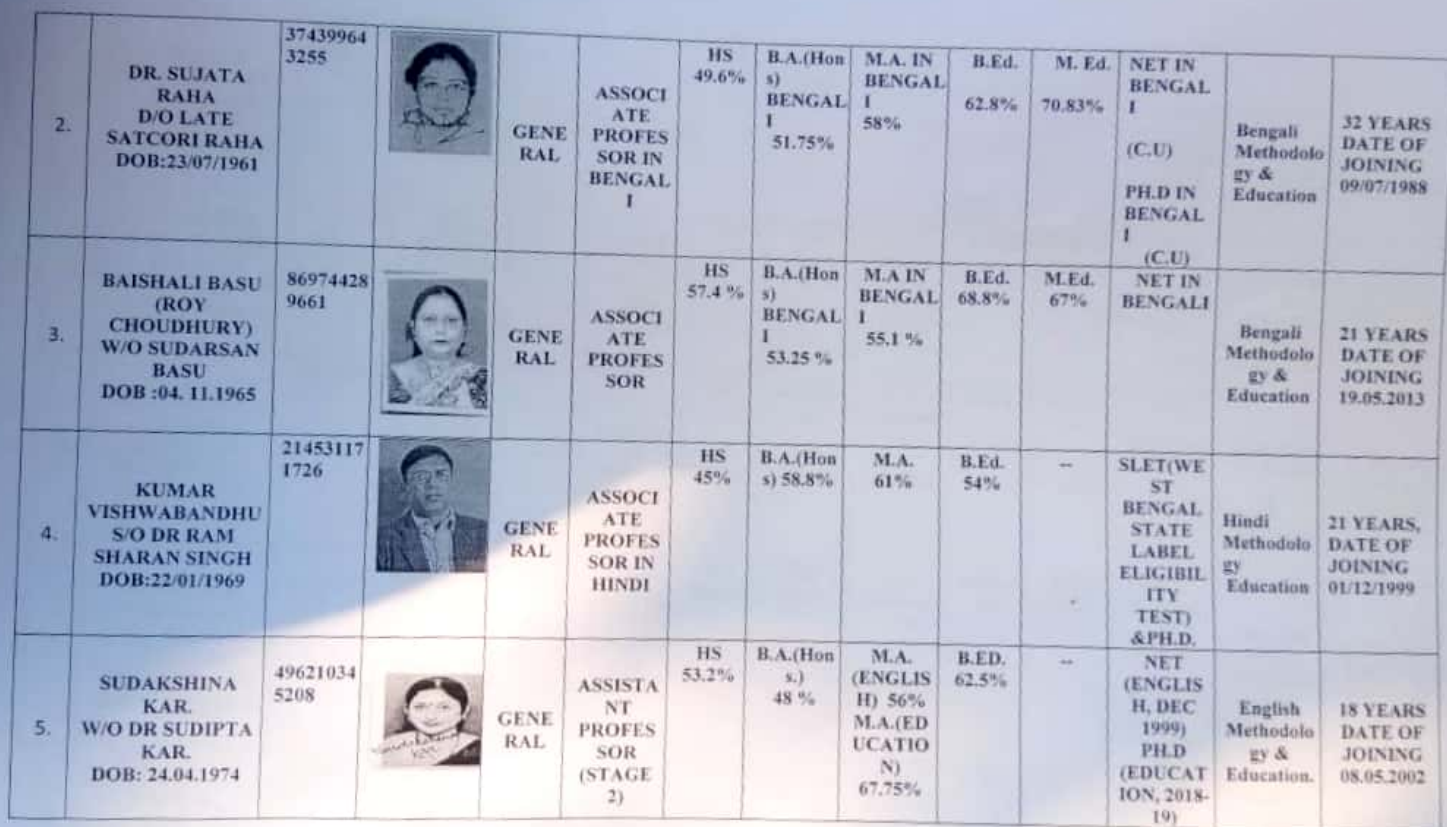 2.
DR. SUJATA
RAHA
D/O LATE
SATCORI RAHA
DOB:23/07/1961
37439964
3255
GENE
RAL
ASSOCI
ATE
PROFES
SOR IN
BENGAL
I
HS
49.6%
B.A.(Hon
s)
BENGAL
I
51.75%
M.A. IN
BENGAL
I
58%
B.Ed.
62.8%
M. Ed.
70.83%
NET IN
BENGAL
I
(C.U)
PH.D IN
BENGAL
I
(C.U)
Bengali
Methodolo
gy &
Education
32 YEARS
DATE OF
JOINING
09/07/1988
3.
BAISHALI BASU
(ROY
CHOUDHURY)
W/O SUDARSAN
BASU
DOB :04. 11.1965
86974428
9661
GENE
RAL
ASSOCI
ATE
PROFES
SOR
HS
57.4 %
B.A.(Hon
s)
BENGAL
I
53.25 %
M.A IN
BENGAL
I
55.1 %
B.Ed.
68.8%
M.Ed.
67%
NET IN
BENGALI
Bengali
Methodolo
gy &
Education
21 YEARS
DATE OF
JOINING
19.05.2013
4.
KUMAR
VISHWABANDHU
S/O DR RAM
SHARAN SINGH
DOB:22/01/1969
21453117
1726
GENE
RAL
ASSOCI
ATE
PROFES
SOR IN
HINDI
HS
45%
B.A.(Hon
s) 58.8%
M.A.
61%
B.Ed.
54%
--
SLET(WE
ST
BENGAL
STATE
LABEL
ELIGIBIL
ITY
TEST)
&PH.D.
Hindi
Methodolo
gy
Education
21 YEARS,
DATE OF
JOINING
01/12/1999
5.
SUDAKSHINA
KAR.
W/O DR SUDIPTA
KAR.
DOB: 24.04.1974
49621034
5208
GENE
RAL
ASSISTA
NT
PROFES
SOR
(STAGE
2)
HS
53.2%
B.A.(Hon
s.)
48 %
M.A.
(ENGLIS
H) 56%
M.A.(ED
UCATIO
N)
67.75%
B.ED.
62.5%
--
NET
(ENGLIS
H, DEC
1999)
PH.D
(EDUCAT
ION, 2018-
19)
English
Methodolo
gy &
Education.
18 YEARS
DATE OF
JOINING
08.05.2002